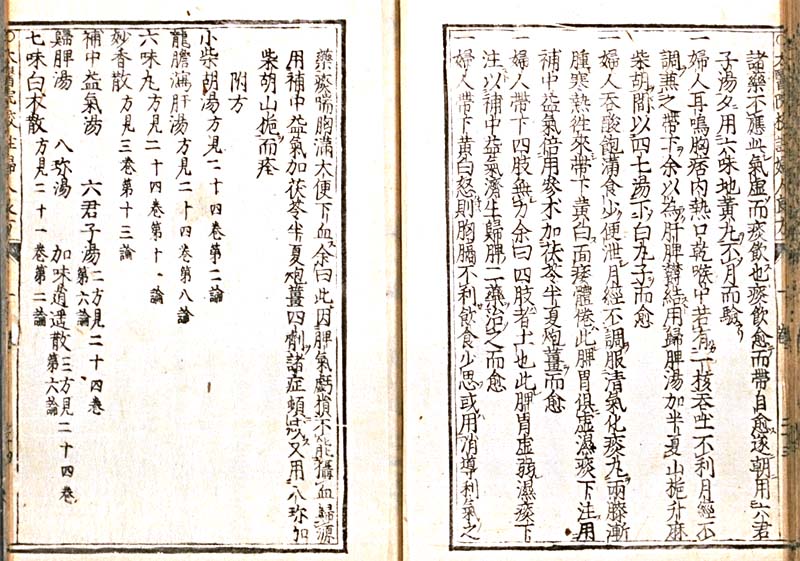 諸藥不應此氣虛而痰飲也痰飲愈而帶自愈遂朝用六君
子湯夕用六味地黃丸不月而驗
一婦人耳鳴胸痞內熱口乾喉中若有一核吞吐不利月經不
調兼之帶下余以為肝脾鬱結用歸脾湯加半夏山梔升麻
柴胡間以四七湯下白丸子而愈
一婦人吞酸飽滿食少便泄月經不調服清氣化痰丸兩膝漸
腫寒熱往來帶下黃白面痿體倦此脾胃俱虛濕痰下注用
補中益氣倍用參朮加茯苓半夏炮薑而愈
一婦人帶下四肢無力余曰四肢者土也此脾胃虛弱濕痰下
注以補中益氣濟生歸脾二藥治之而愈
一婦人帶下黃白怒則胸膈不利飲食少思或用消導利氣之
藥痰喘胸滿大便下血余曰此因脾氣虧損不能攝血歸源
用補中益氣加茯苓半夏炮薑四劑諸症頓退又用八珍加
柴胡山梔而痊
附方
小柴胡湯方見二十四卷第二論
龍膽瀉肝湯方見二十四卷第八論
六味丸方見二十四卷第十一論
妙香散方見三卷第十三論
補中益氣湯 六君子湯二方見二十四卷第六論
歸脾湯 八珍湯 加味逍遙散三方見二十四卷第六論
七味白朮散方見二十一卷第二論